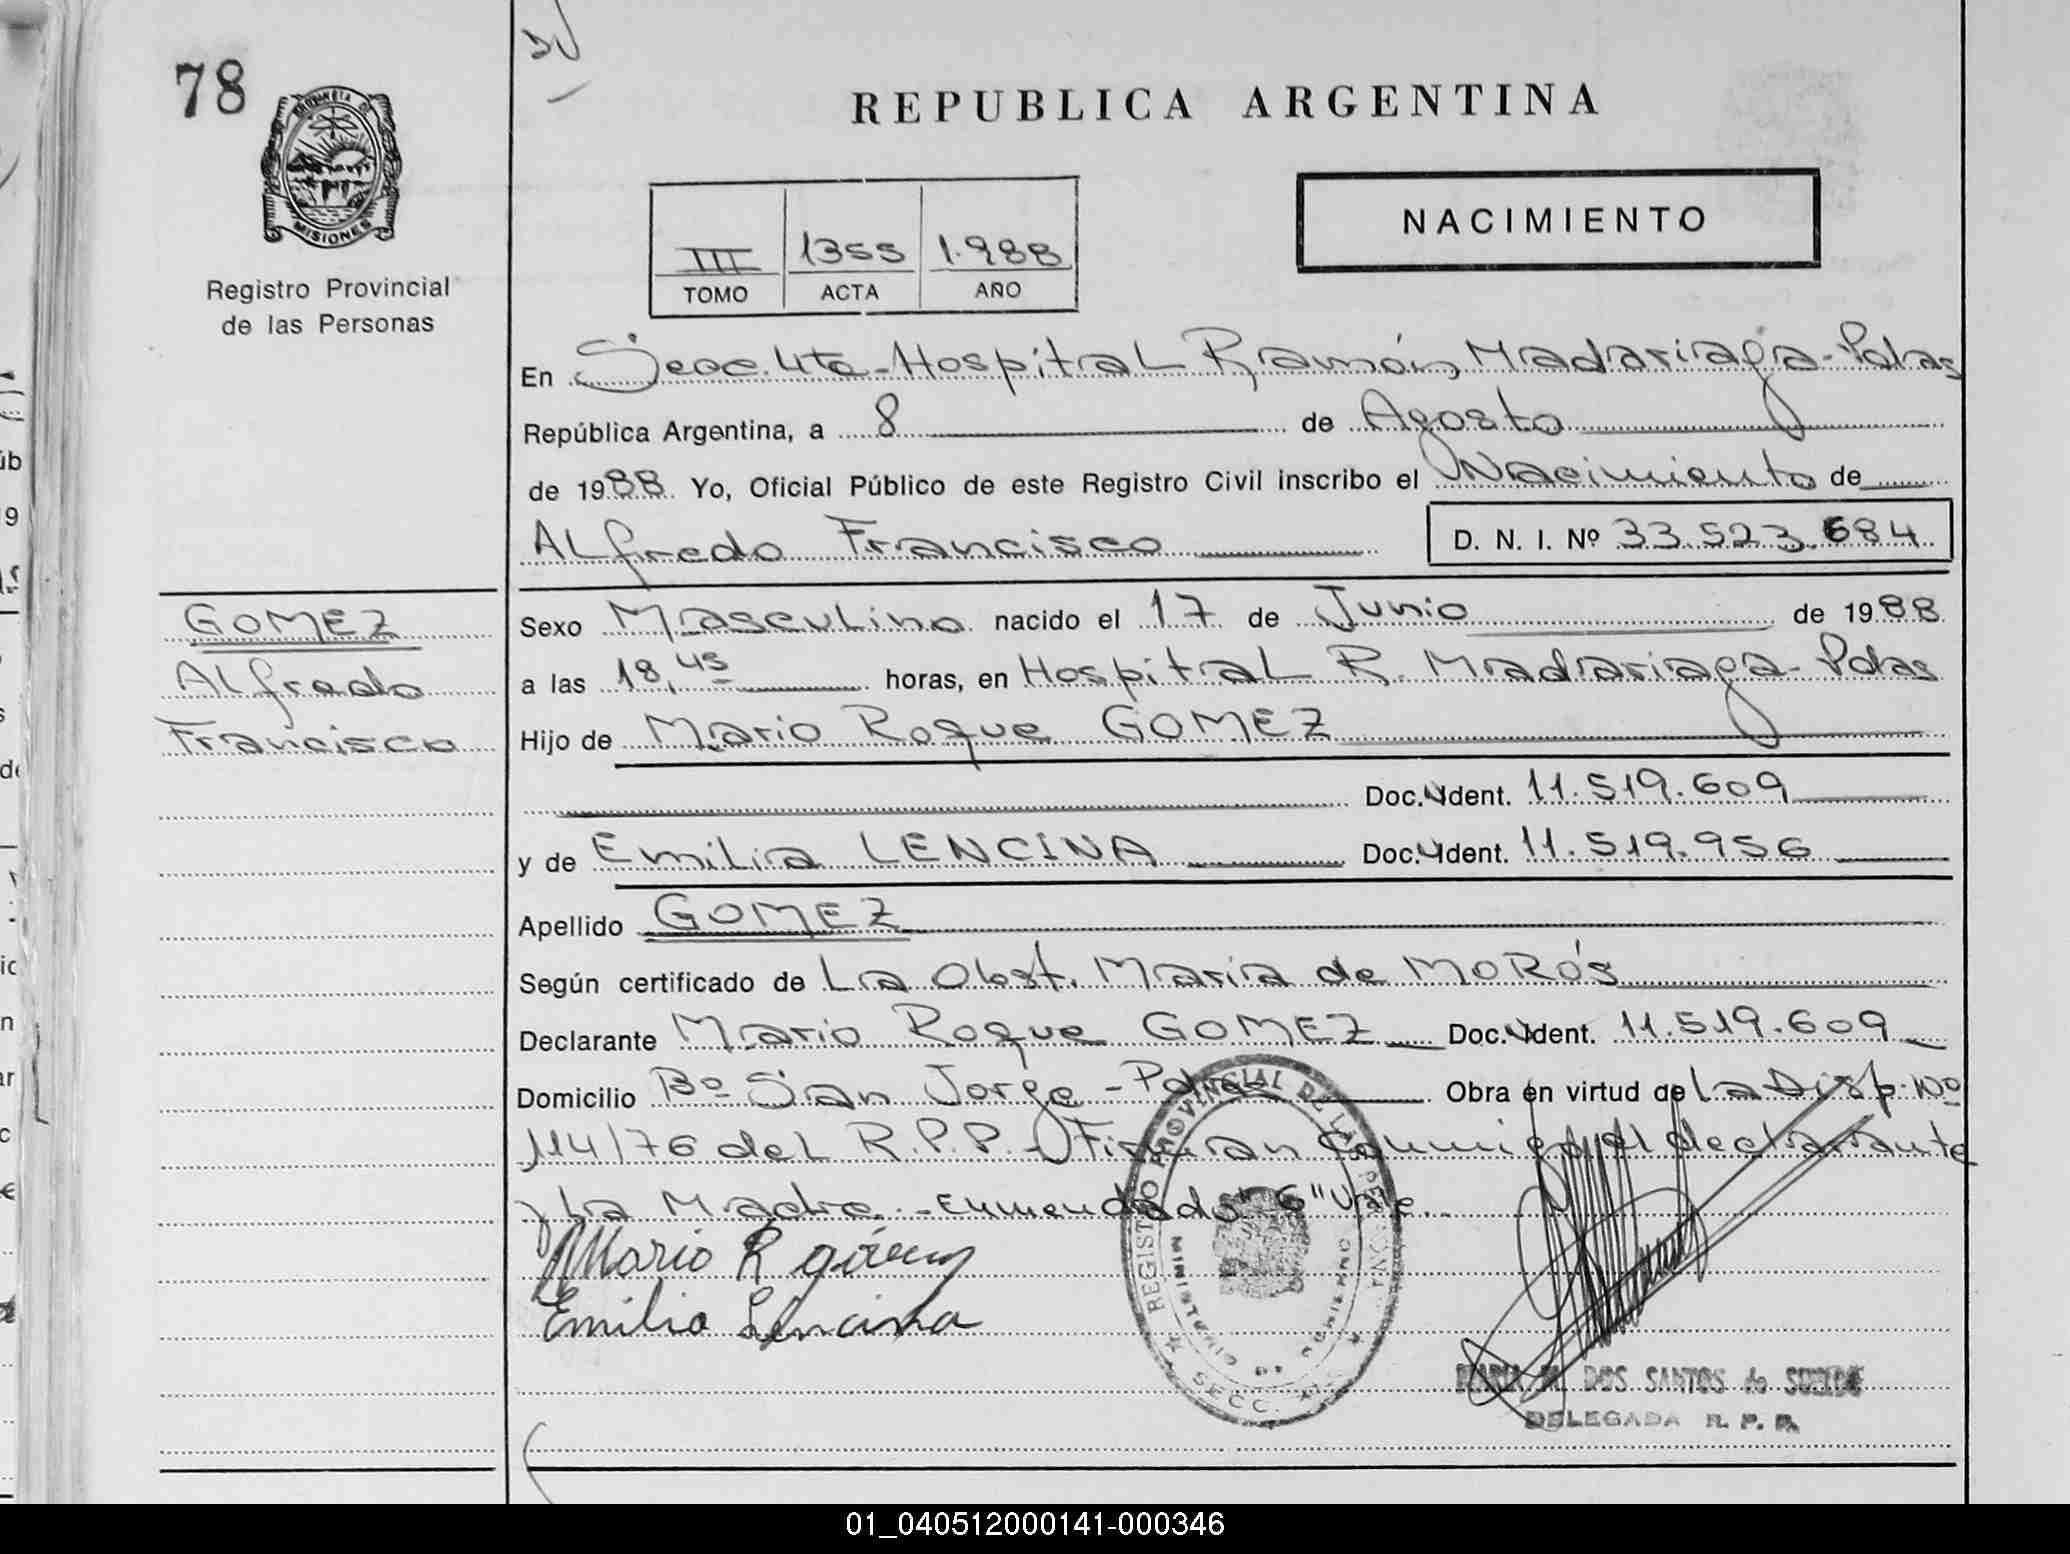 78
DV
PROVINCIA DE
MISIONES
Registro Provincial
de las Personas
REPUBLICA ARGENTINA
NACIMIENTO
III 1355 1.988
TOMO ACTA AÑO
En Secc. 4ta - Hospital Ramón Madariaga - Pdas
República Argentina, a 8 de Agosto
de 1988 Yo, Oficial Público de este Registro Civil inscribo el Nacimiento de
ALfredo Francisco D. N. I. Nº 33.523.684
GOMEZ
ALfredo
Francisco
Sexo Masculino nacido el 17 de Junio de 1988
a las 18,45 horas, en Hospital R. Madariaga - Pdas
Hijo de Mario Roque GOMEZ
Doc. Ident. 11.519.609
y de Emilia LENCINA Doc. Ident. 11.519.956
Apellido GOMEZ
Según certificado de La Obst. Maria de MoRós
Declarante Mario Roque GOMEZ Doc. Ident. 11.519.609
Domicilio Bº San Jorge - Pdas Obra en virtud de la Disp. Nº
114/76 del R.P.P. - Firman conmigo el declarante
y la Madre. - Enmendado "6" Vale.
Mario R gómez
Emilia Lencina
REGISTRO PROVINCIAL DE LAS PERSONAS
MINISTERIO DE GOBIERNO
SECC.
MARIA DOS SANTOS de
DELEGADA R. P. P.
01_040512000141-000346